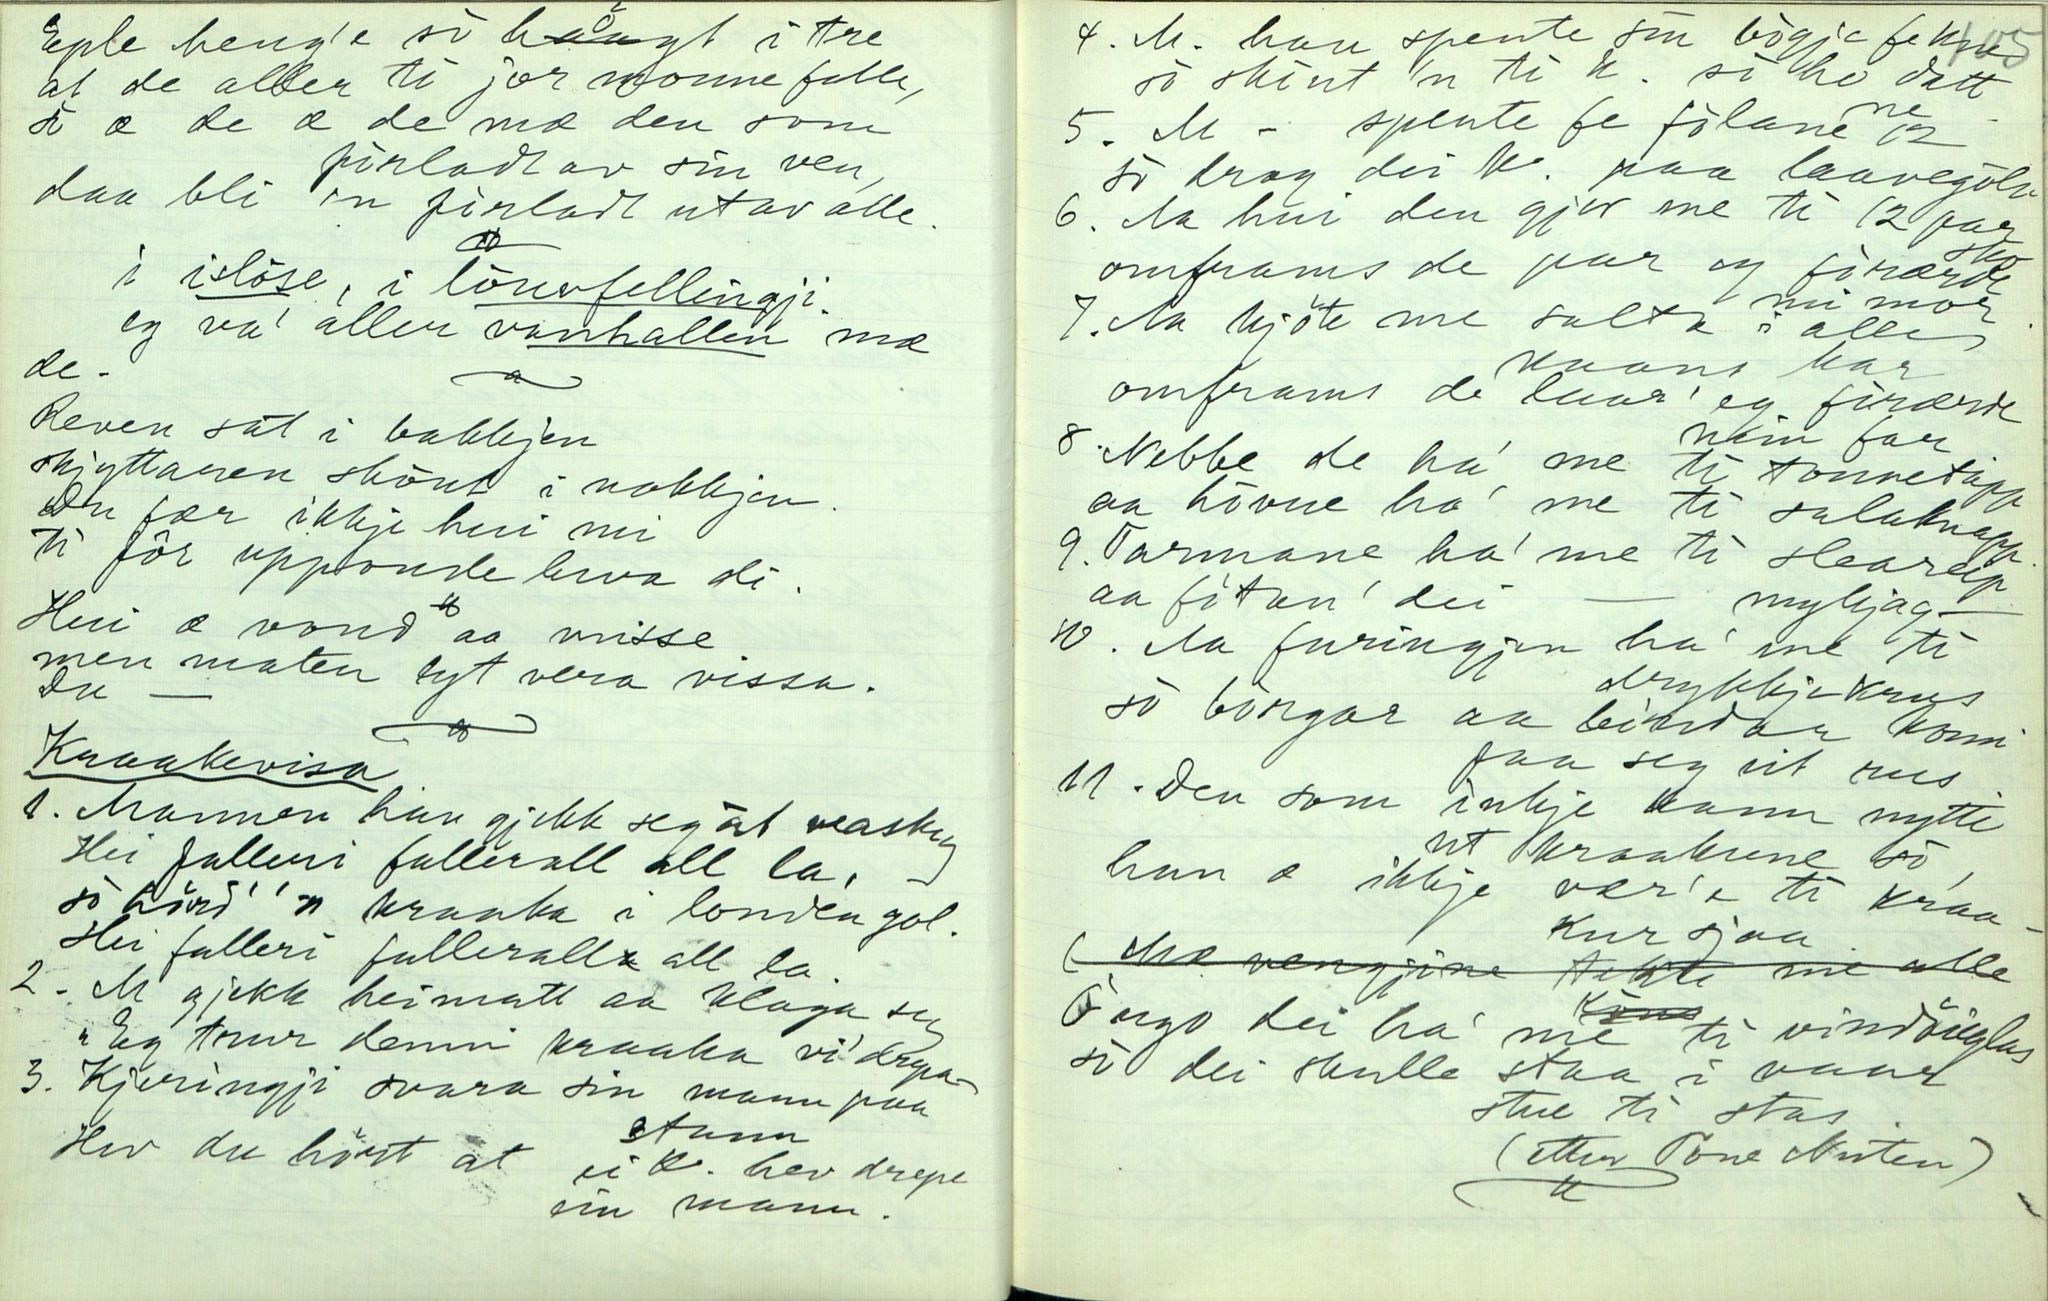 Eple heng'e so högt i tre
at de aller ti jor monne falle,
so æ de æ de mæ den som
förladt av sin ven,
daa bli 'n förladt utav alle.
i islöse, i lönsfellingji.
eg va' aller vanhallen mæ
de.
Reven sat i bakkjen
skjyttaren skönt i nakkjen.
Du fær ikkje hui mi
ti för upponde leva di.
Hui æ vond aa misse
men maten lyt vera vissa.
Du —
Kraakevisa
1. Mannen han gjekk seg åt veaskog
Hei falleri fallerall all la,
so hörd' 'n kraaka i londen gol.
Hei falleri fallerall all la.
2. M gjekk heimatt aa klaga seg
"Eg trur denni kraaka vi' drepa
3. Kjeringji svara sin mann paa
stann
Hev du hört at ei k. hev drepe
ein mann.
105
4. M. han spente sin bogje fe kne
so skönt 'n ti k. so ho datt
ne
5. M - spente fe folane 12
so drog dei k. paa laavegoln
6. Aa hui den gjer me ti 12 par
sko
omframs de par eg förærde
mi mor.
7. Aa kjöte me salta i alle
kaans kar
omframs de laar' eg förærde
min far
8. Nebbe de ha' me ti tonnetapp
aa hövue ha' me ti salaknapp.
9. Tarmane ha' me ti sleareip
aa fötan' dei — mykjag —
10. Aa furingjen ha' me ti
drykkjekrus
so börgar aa böndar komi
paa seg eit rus
11. Den som inkje kann nytte
ut kraakene so,
han æ ikkje vær'e ti kraa-
kur sjaa.
( Mæ vengjine tekte me alle
Augo dei ha' me ti vindöuglas
so dei skulle staa i vaar
stue ti stas.
(etter Tone Nuten)